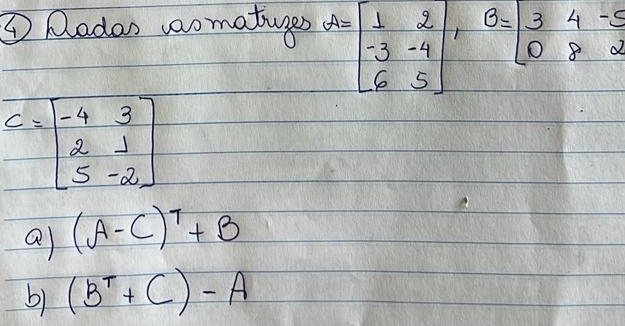 ④ Dadas as matrizes A = [1 2; -3 -4; 6 5], B = [3 4 -5; 0 8 2
C = [-4 3; 2 1; 5 -2]
a) (A - C)ᵀ + B
b) (Bᵀ + C) - A